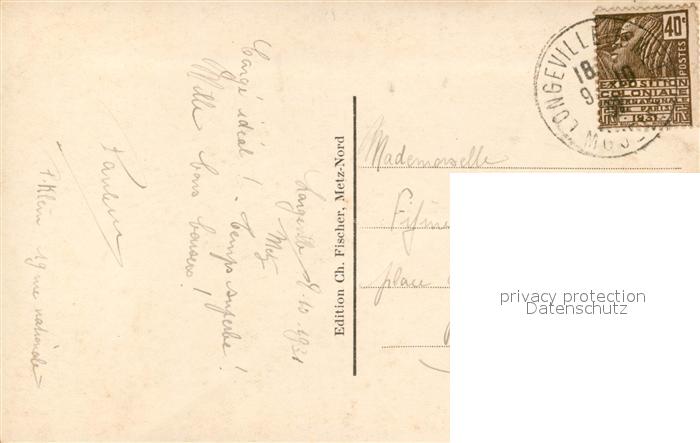 Longeville
Metz 8.10.1931
Congé idéal ! - Temps superbe !
Mille bons baisers !
19 rue nationale
Edition Ch. Fischer, Metz-Nord
Mademoiselle
place
LONGEVILLE
18 10
9
MOS
40c
POSTES
EXPOSITION
COLONIALE
INTERNATIONALE
PARIS
1931
privacy protection
Datenschutz